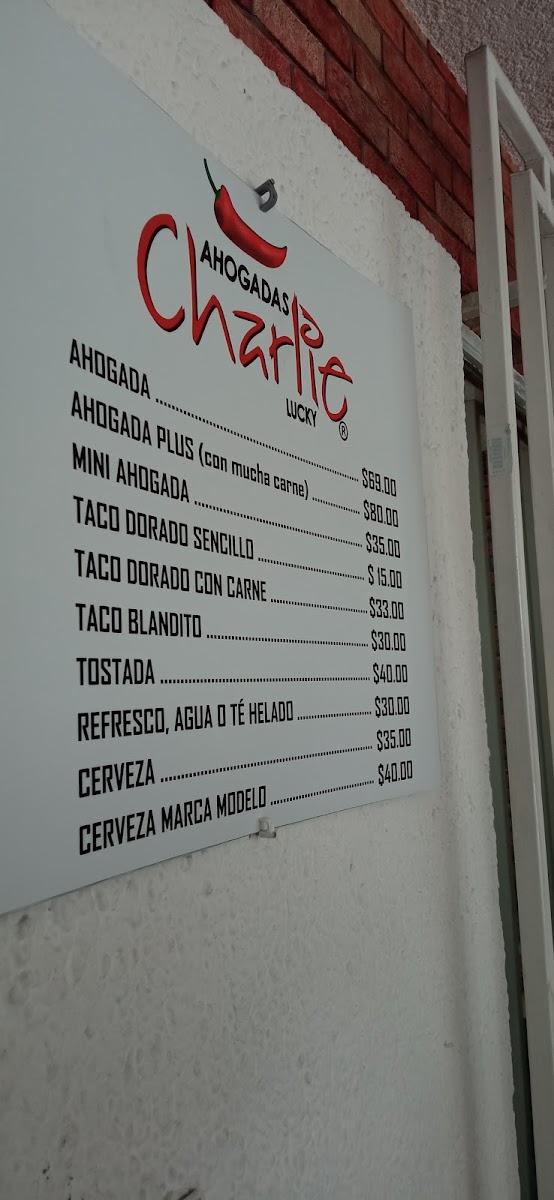 AHOGADAS
Charlie
LUCKY ®
AHOGADA ........ $69.00
AHOGADA PLUS (con mucha carne) ........ $80.00
MINI AHOGADA ........ $35.00
TACO DORADO SENCILLO ........ $ 15.00
TACO DORADO CON CARNE ........ $33.00
TACO BLANDITO ........ $30.00
TOSTADA ........ $40.00
REFRESCO, AGUA O TÉ HELADO ........ $30.00
CERVEZA ........ $35.00
CERVEZA MARCA MODELO ........ $40.00